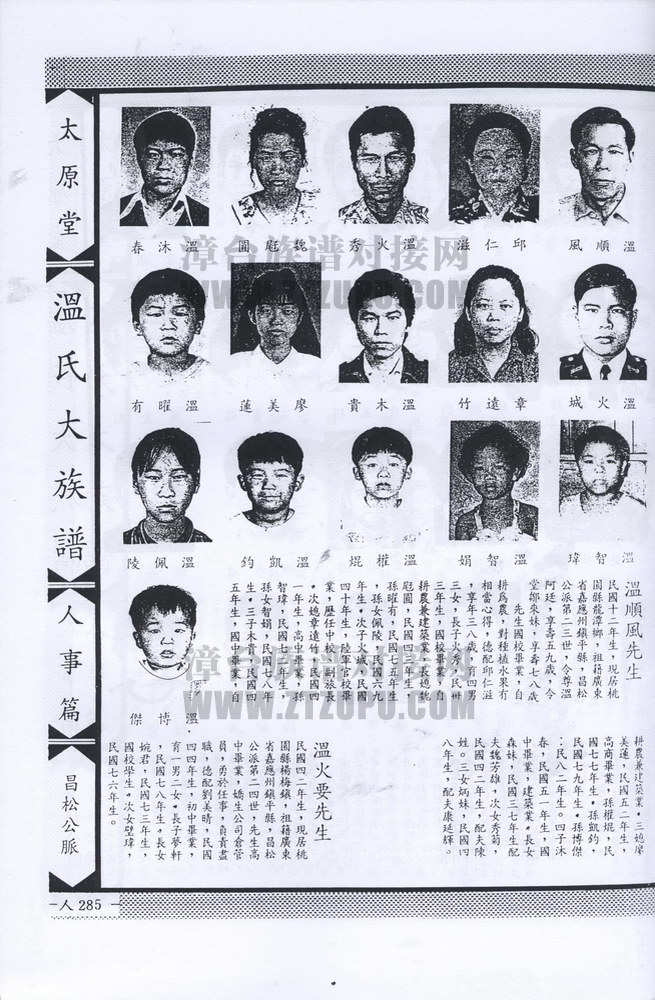 太原堂
溫氏大族譜
人事篇
昌松公脈
春沐溫
圓庭魏
秀火溫
滋仁邱
風順溫
漳台族谱对接网
WWW.ZTZUPU.COM
有曜溫
蓮美廖
貴木溫
竹遠章
城火溫
陵佩溫
鈞凱溫
焜權溫
娟智溫
瑋智溫
傑博溫
漳台族谱对接网
WWW.ZTZUPU.COM
溫順風先生
民國十二年生，現居桃
園縣龍潭鄉，祖籍廣東
省嘉應州鎮平縣，昌松
公派第二三世，令尊溫
阿廷，享壽五九歲，令
堂鄒來妹，享壽七八歲
。先生國校畢業，自
耕為農，對種植水果有
相當心得，德配邱仁滋
，享年三八歲，育四男
三女，長子火秀，民卅
三年生，國校畢業，自
耕農兼建築業，長媳魏
庭圓，民國四年生，
孫曜有，民國七五年生
，孫女佩陵，民國六九
年生。次子火城，民國
四十年生，陸軍官校畢
業，歷任中校，副旅長
。次媳章遠竹，民國四
一年生，高中畢業，孫
智瑋，民國七年生，
孫女智娟，民國七八年
生。三子木貴，民國四
五年生，國中畢業，自
耕農兼建築業。三媳廖
美蓮，民國五二年生，
高商畢業，孫權焜，民
國七七年生。孫凱鈞，
民國七九年生。孫博傑
：民八二年生。四子沐
春，民國五一年生，國
中畢業，建築業。長女
森妹，民國三七年生配
夫魏芳雄，次女秀菊，
民國四二年生，配夫陳
姓。三女炳妹，民國四
八年生，配夫康延輝。
溫火要先生
民國四二年生，現居桃
園縣楊梅鎮，祖籍廣東
省嘉應州鎮平縣，昌松
公派第二四世，先生高
中畢業，嬌生公司倉管
員，勇於任事，負責盡
職，德配劉美晴，民國
四四年生，初中畢業，
育一男二女。長子夢軒
，民國七八年生。長女
婉君，民國七三年生，
國校學生。次女壁瑋，
民國七六年生。
人 285